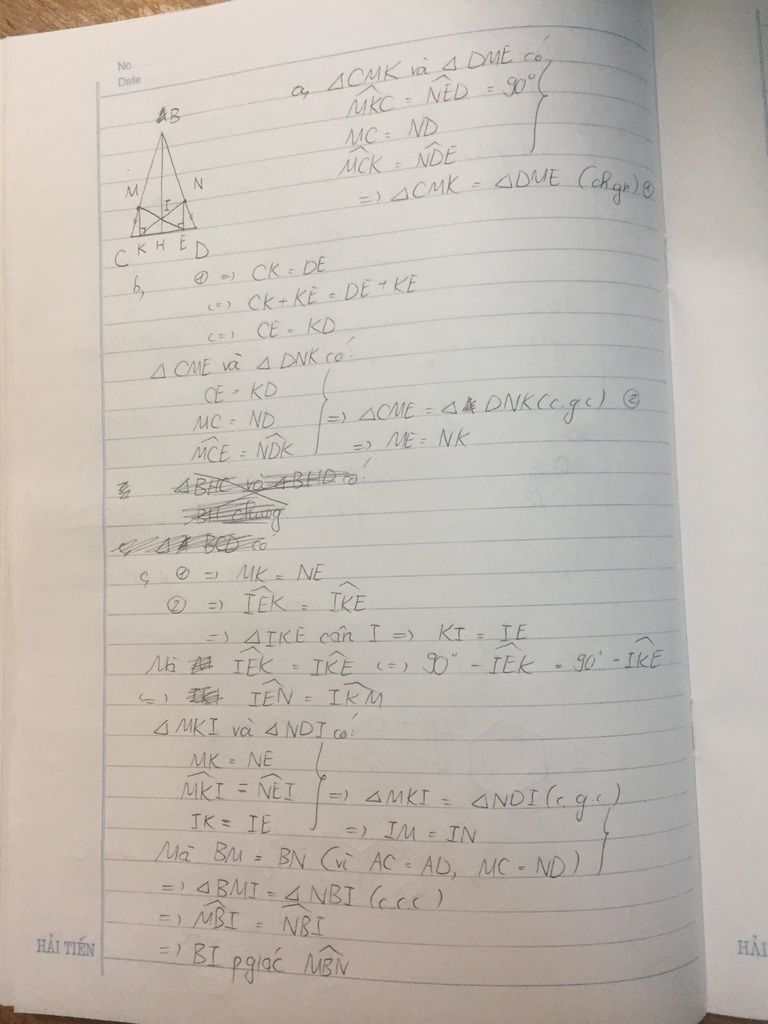 No.
Date
a, △CMK và △DME có
M̂KC = N̂ED = 90°
MC = ND
M̂CK = N̂DE
=> △CMK = △DME (ch.gn) ①
B
M N
I
C K H E D
b, ① => CK = DE
<=> CK + KE = DE + KE
<=> CE = KD
△CME và △DNK có:
CE = KD
MC = ND => △CME = △DNK (c.g.c) ②
M̂CE = N̂DK => ME = NK
△BHC và △BHD có:
BH chung
△BCD có
c, ① => MK = NE
② => ÎEK = ÎKE
=> △IKE cân I => KI = IE
Mà ÎEK = ÎKE <=> 90° - ÎEK = 90° - ÎKE
<=> ÎEN = ÎKM
△MKI và △NDI có:
MK = NE
M̂KI = N̂EI => △MKI = △NDI (c.g.c)
IK = IE => IM = IN
Mà BM = BN (vì AC = AD, MC = ND)
=> △BMI = △NBI (c.c.c)
=> M̂BI = N̂BI
=> BI pgiác M̂BN
HẢI TIẾN
HẢI